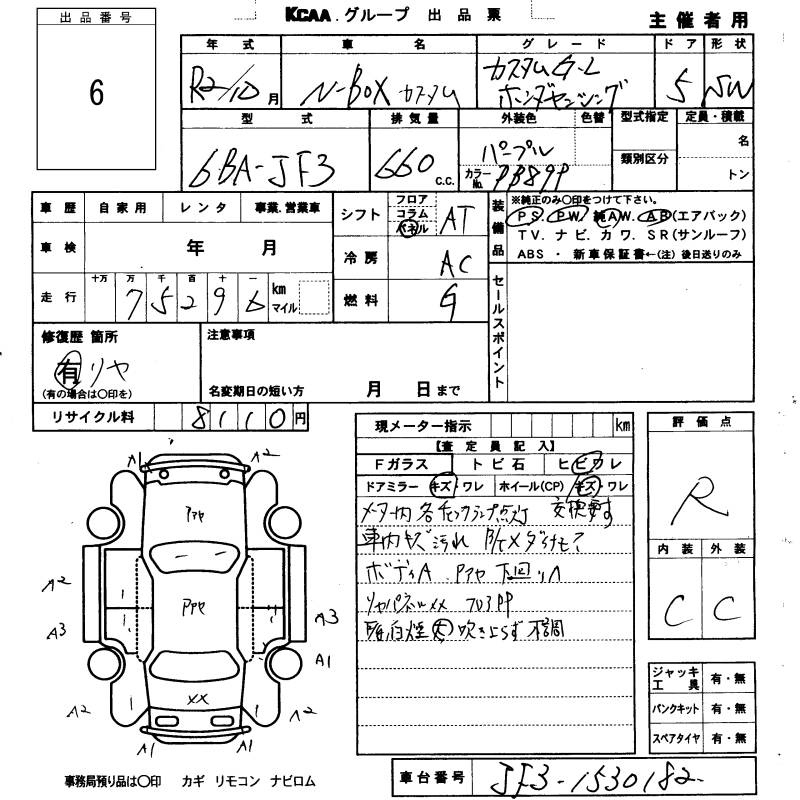 KCAA グループ 出品票
主催者用
出品番号
6
年式 車名 グレード ドア 形状
R2/10月 N-BOX カスタム カスタムG-L ホンダセンシング 5 SW
型式 排気量 外装色 色替 型式指定 定員・積載
6BA-JF3 660 c.c. パープル 名
カラーNo. PB89P 類別区分 トン
車歴 自家用 レンタ 事業.営業車
シフト フロア コラム パネル AT
装備品
※純正のみ○印をつけて下さい。
PS. PW. 純AW. AB(エアバック)
TV. ナビ. カワ. SR(サンルーフ)
ABS ・ 新車保証書←(注)後日送りのみ
車検 年 月
冷房 AC
走行 十万 万 千 百 十 一 km マイル
75296
燃料 G
セールスポイント
修復歴 箇所
有 リヤ
(有の場合は○印を)
注意事項
名変期日の短い方 月 日まで
リサイクル料 8110円
現メーター指示 km
【査定員記入】
Fガラス トビ石 ヒビワレ
ドアミラー キズ・ワレ ホイール(CP) キズ・ワレ
メーター内各チェックランプ点灯 交換要す
車内キズ汚れ
ボディA 下回り
吹き上らず 不調
評価点
R
内装 外装
C C
ジャッキ工具 有・無
パンクキット 有・無
スペアタイヤ 有・無
A1 A2
PアヤA2 PアヤA3
A3 A1
XX
A2 A2
A1 A1
事務局預り品は○印 カギ リモコン ナビロム
車台番号 JF3-1530182